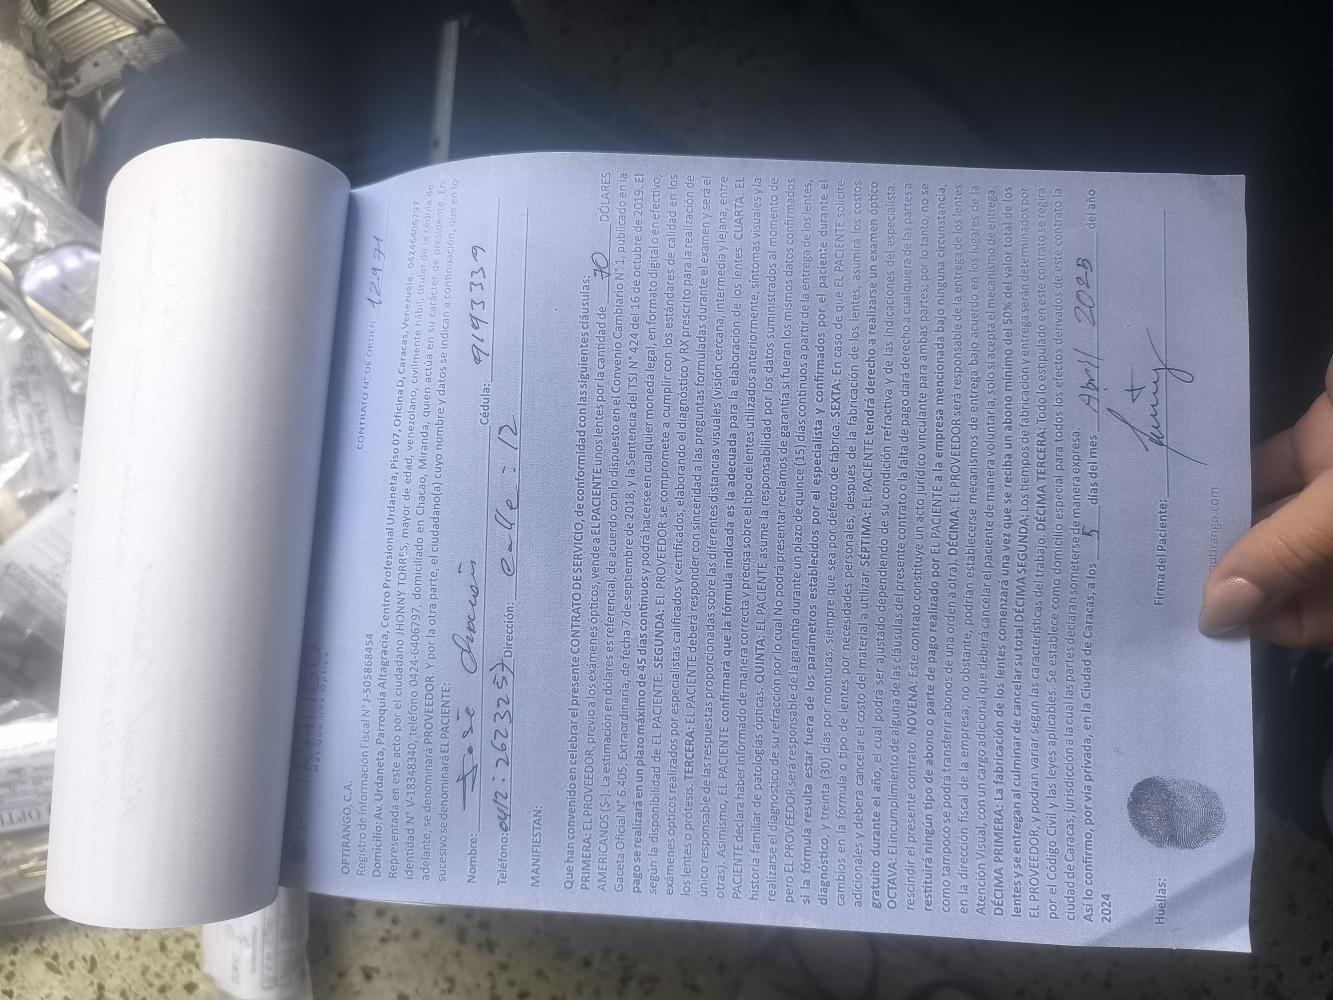 CONTRATO N° DE ORDEN 12971
OPTIRANGO, C.A.
Registro de Información Fiscal N° J-505868454
Domicilio: Av. Urdaneta, Parroquia Altagracia, Centro Profesional Urdaneta, Piso 07, Oficina D, Caracas, Venezuela. 04246406797
Representada en este acto por el ciudadano JHONNY TORRES, mayor de edad, venezolano, civilmente hábil, titular de la cédula de
identidad N° V-18348340, teléfono 0424-6406797, domiciliado en Chacao, Miranda, quien actúa en su carácter de presidente. En
adelante, se denominará PROVEEDOR. Y por la otra parte, el ciudadano(a) cuyo nombre y datos se indican a continuación, que en lo
sucesivo se denominará EL PACIENTE:
Nombre: José Chacón Cédula: 9193339
Teléfono: 0412: 2623257 Dirección: calle: 12
MANIFIESTAN:
Que han convenido en celebrar el presente CONTRATO DE SERVICIO, de conformidad con las siguientes cláusulas:
PRIMERA: EL PROVEEDOR, previo a los exámenes ópticos, vende a EL PACIENTE unos lentes por la cantidad de 70 DÓLARES
AMERICANOS ($-). La estimación en dólares es referencial, de acuerdo con lo dispuesto en el Convenio Cambiario N° 1, publicado en la
Gaceta Oficial N° 6.405, Extraordinaria, de fecha 7 de septiembre de 2018, y la Sentencia del TSJ N° 424 del 16 de octubre de 2019. El
pago se realizará en un plazo máximo de 45 días continuos y podrá hacerse en cualquier moneda legal, en formato digital o en efectivo,
según la disponibilidad de EL PACIENTE. SEGUNDA: EL PROVEEDOR se compromete a cumplir con los estándares de calidad en los
exámenes ópticos realizados por especialistas calificados y certificados, elaborando el diagnóstico y RX prescrito para la realización de
los lentes o prótesis. TERCERA: EL PACIENTE deberá responder con sinceridad a las preguntas formuladas durante el examen y será el
único responsable de las respuestas proporcionadas sobre las diferentes distancias visuales (visión cercana, intermedia y lejana, entre
otras). Asimismo, EL PACIENTE confirmará que la fórmula indicada es la adecuada para la elaboración de los lentes. CUARTA: EL
PACIENTE declara haber informado de manera correcta y precisa sobre el tipo de lentes utilizados anteriormente, síntomas visuales y la
historia familiar de patologías ópticas. QUINTA: EL PACIENTE asume la responsabilidad por los datos suministrados al momento de
realizarse el diagnostico de su refracción por lo cual No podrá presentar reclamos de garantía si fueran los mismos datos confirmados
pero EL PROVEEDOR será responsable de la garantía durante un plazo de quince (15) días continuos a partir de la entrega de los lentes,
si la fórmula resulta estar fuera de los parámetros establecidos por el especialista y confirmados por el paciente durante el
diagnóstico, y treinta (30) días por monturas, siempre que sea por defecto de fábrica. SEXTA: En caso de que EL PACIENTE solicite
cambios en la fórmula o tipo de lentes por necesidades personales, después de la fabricación de los lentes, asumirá los costos
adicionales y deberá cancelar el costo del material a utilizar. SÉPTIMA: EL PACIENTE tendrá derecho a realizarse un examen óptico
gratuito durante el año, el cual podrá ser ajustado dependiendo de su condición refractiva y de las indicaciones del especialista.
OCTAVA: El incumplimiento de alguna de las cláusulas del presente contrato o la falta de pago dará derecho a cualquiera de las partes a
rescindir el presente contrato. NOVENA: Este contrato constituye un acto jurídico vinculante para ambas partes; por lo tanto, no se
restituirá ningún tipo de abono o parte de pago realizado por EL PACIENTE a la empresa mencionada bajo ninguna circunstancia,
como tampoco se podrá transferir abonos de una orden a otra). DÉCIMA: EL PROVEEDOR será responsable de la entrega de los lentes
en la dirección fiscal de la empresa; no obstante, podrían establecerse mecanismos de entrega bajo acuerdo en los lugares de la
Atención Visual, con un cargo adicional que deberá cancelar el paciente de manera voluntaria, solo si acepta el mecanismo de entrega.
DÉCIMA PRIMERA: La fabricación de los lentes comenzará una vez que se reciba un abono mínimo del 50% del valor total de los
lentes y se entregan al culminar de cancelar su total DÉCIMA SEGUNDA: Los tiempos de fabricación y entrega serán determinados por
EL PROVEEDOR, y podrán variar según las características del trabajo. DÉCIMA TERCERA: Todo lo estipulado en este contrato se regirá
por el Código Civil y las leyes aplicables. Se establece como domicilio especial para todos los efectos derivados de este contrato la
ciudad de Caracas, jurisdicción a la cual las partes declaran someterse de manera expresa
Así lo confirmo, por vía privada, en la Ciudad de Caracas, a los 5 días del mes Abril 2025 del año
2024
Huellas: Firma del Paciente:
optirango.com